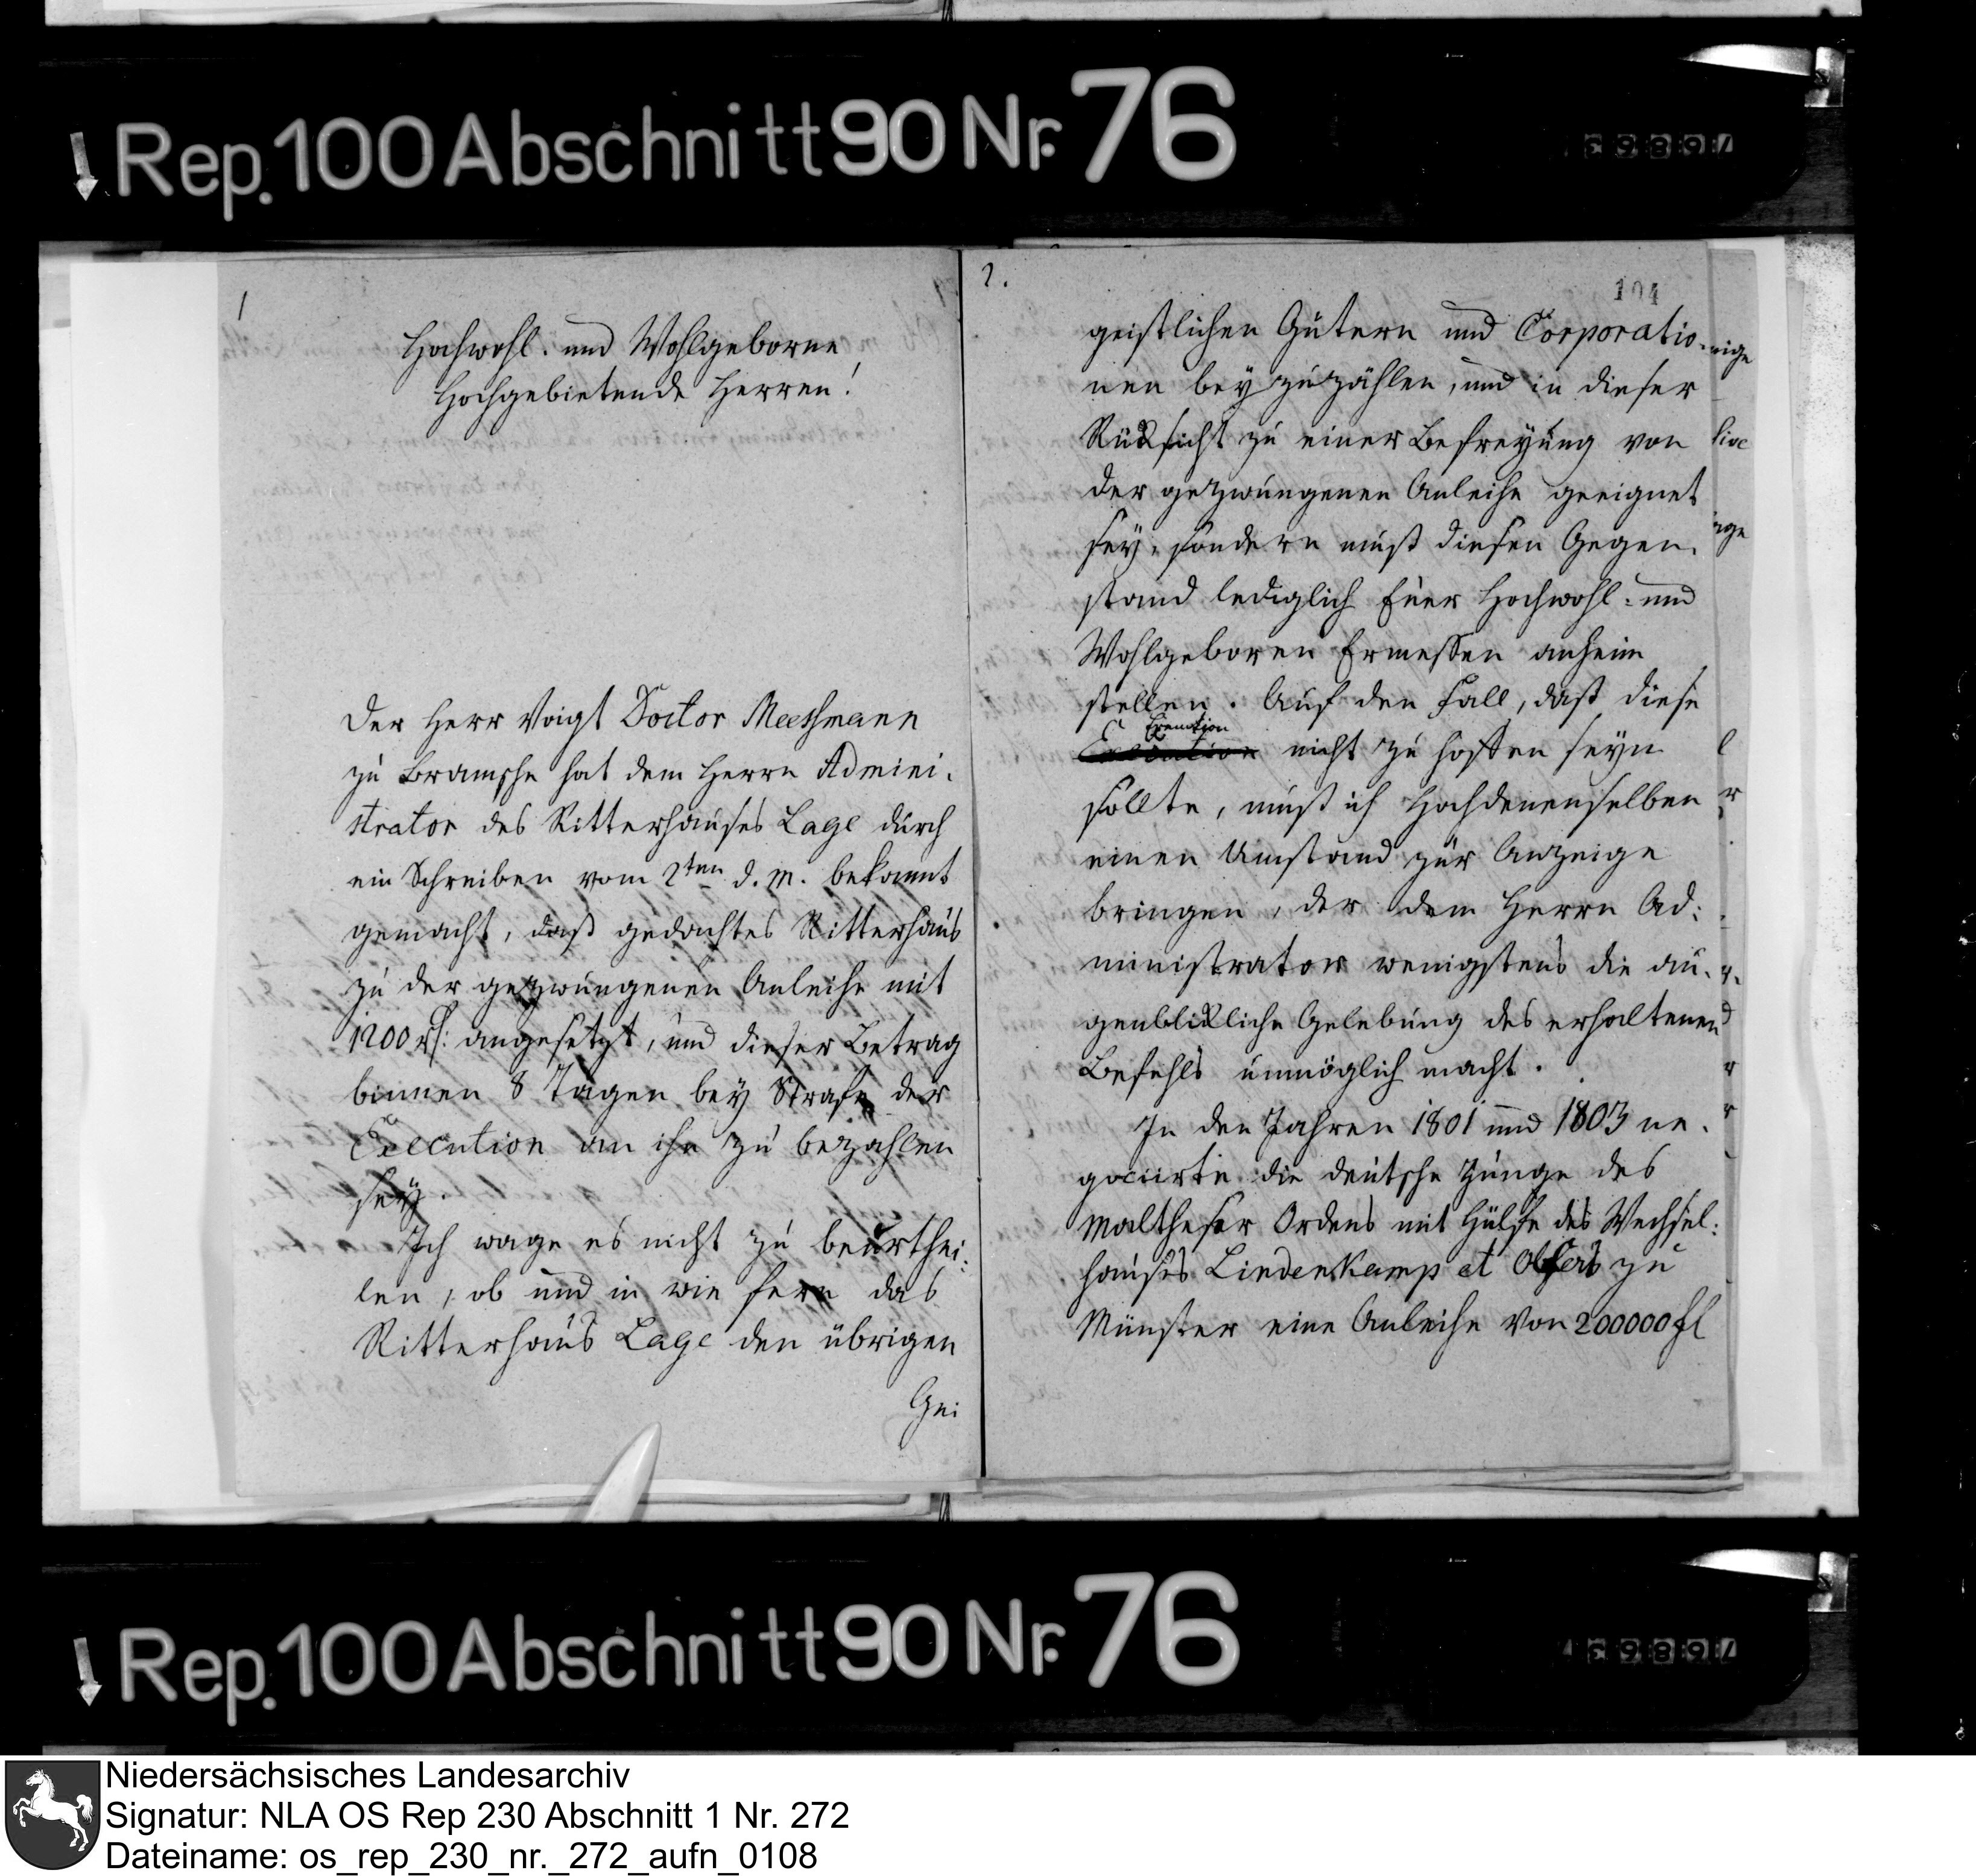 Rep. 100 Abschnitt 90 Nr. 76
1
Hochwohl. und Wohlgeborne
Hochgebietende Herren!
Der Herr Voigt Doctor Meessmann
zu Bramsche hat dem Herrn Admini-
strator des Ritterhauses Lage durch
ein Schreiben vom 2ten d. M. bekannt
gemacht, daß gedachtes Ritterhaus
zu der gezwungenen Anleihe mit
1200 rl: angesetzt, und dieser Betrag
binnen 8 Tagen bey Strafe der
Execution an ihn zu bezahlen
sey.
Ich wage es nicht zu beurthei-
len, ob und in wie fern das
Ritterhaus Lage den übrigen
Gei
2.
104
geistlichen Gütern und Corporatio-
nen beyzuzählen, und in dieser
Rücksicht zu einer Befreyung von
der gezwungenen Anleihe geeignet
sey, sondern muß diesen Gegen-
stand lediglich Euer Hochwohl- und
Wohlgeboren Ermessen anheim
stellen. Auf den Fall, daß diese
Exemtion
nicht zu hoffen seyn
sollte, muß ich Hochdenenselben
einen Umstand zur Anzeige
bringen, der dem Herrn Ad-
ministrator wenigstens die au-
genblickliche Gelebung des erhaltenen
Befehls unmöglich macht.
In den Jahren 1801 und 1803 ne-
gociirte die deutsche Zunge des
Maltheser Ordens mit Hülfe des Wechsel-
hauses Lindenkamp et Olfers zu
Münster eine Anleihe von 200000 fl
Rep. 100 Abschnitt 90 Nr. 76
Niedersächsisches Landesarchiv
Signatur: NLA OS Rep 230 Abschnitt 1 Nr. 272
Dateiname: os_rep_230_nr._272_aufn_0108